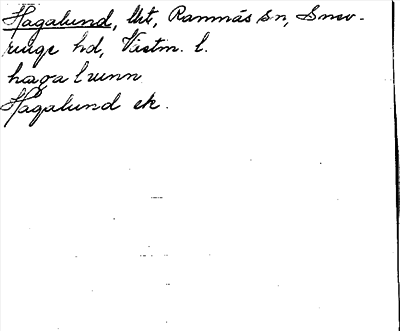 Hagalund, Utt, Ramnäs sn, Snev-
ringe hd, Västm. l.
haga lunn
Hagalund ek.